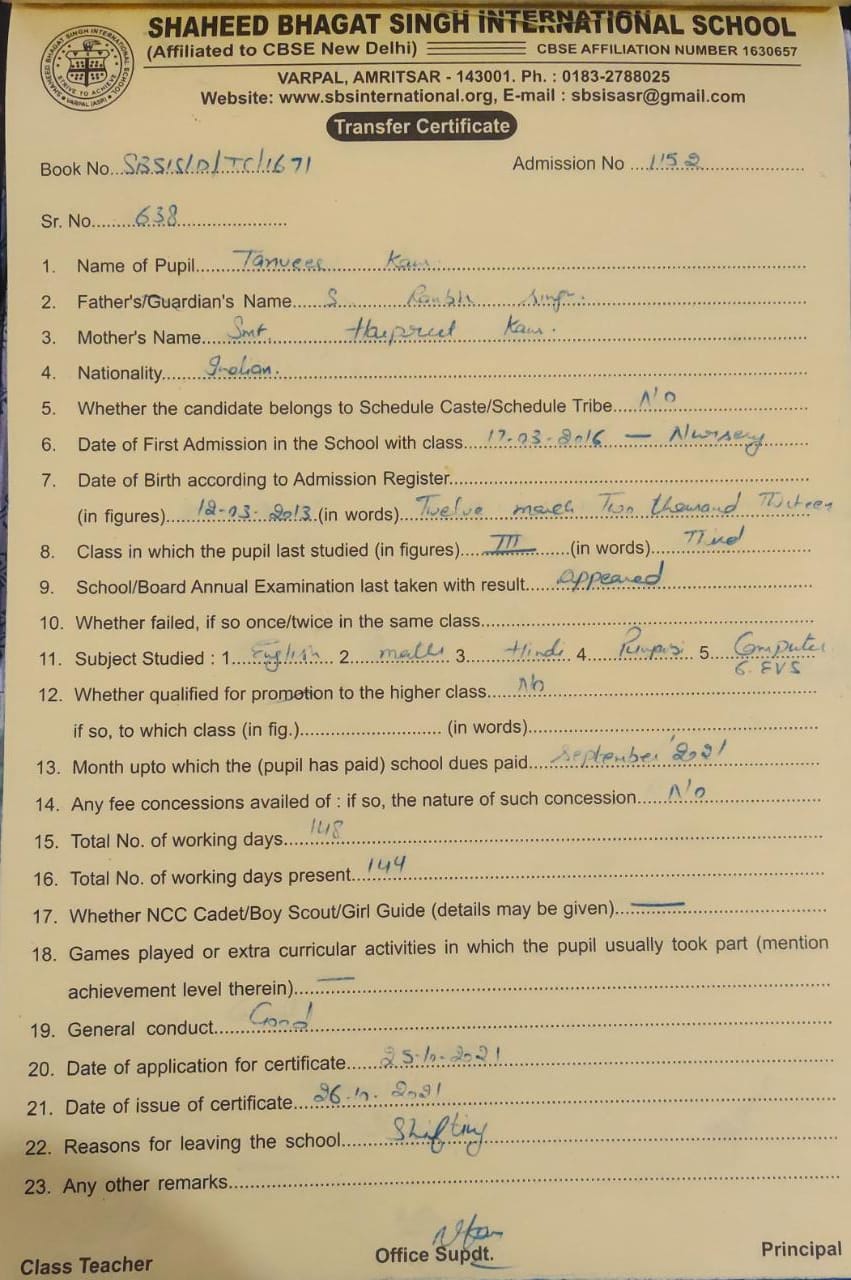 SHAHEED BHAGAT SINGH INTERNATIONAL SCHOOL
(Affiliated to CBSE New Delhi) CBSE AFFILIATION NUMBER 1630657
VARPAL, AMRITSAR - 143001. Ph. : 0183-2788025
Website: www.sbsinternational.org, E-mail : sbsisasr@gmail.com
SHAHEED BHAGAT SINGH INTERNATIONAL SCHOOL
STRIVE TO ACHIEVE
VARPAL (ASR)
Transfer Certificate
Book No...SBSIS/D/TC/1671 Admission No ....1152
Sr. No.......638
1. Name of Pupil.....Tanveer Kaur
2. Father's/Guardian's Name.....S. Singh
3. Mother's Name....Smt. Harpreet Kaur.
4. Nationality.......Indian.
5. Whether the candidate belongs to Schedule Caste/Schedule Tribe....No
6. Date of First Admission in the School with class....17-03-2016 — Nursery
7. Date of Birth according to Admission Register
(in figures)......12-03-2013.(in words)...Twelve march Two thousand Thirteen
8. Class in which the pupil last studied (in figures)....III......(in words)....Third
9. School/Board Annual Examination last taken with result.....appeared
10. Whether failed, if so once/twice in the same class
11. Subject Studied : 1....English 2.....maths 3.......Hindi 4.....Punjabi 5....Computer
6. EVS
12. Whether qualified for promotion to the higher class.....No
if so, to which class (in fig.)............................ (in words)
13. Month upto which the (pupil has paid) school dues paid....September 2021
14. Any fee concessions availed of : if so, the nature of such concession.....No
15. Total No. of working days....148
16. Total No. of working days present...144
17. Whether NCC Cadet/Boy Scout/Girl Guide (details may be given)...—
18. Games played or extra curricular activities in which the pupil usually took part (mention
achievement level therein)....—
19. General conduct......Good
20. Date of application for certificate......25-10-2021
21. Date of issue of certificate...26-10-2021
22. Reasons for leaving the school.......Shifting
23. Any other remarks
Class Teacher Office Supdt. Principal